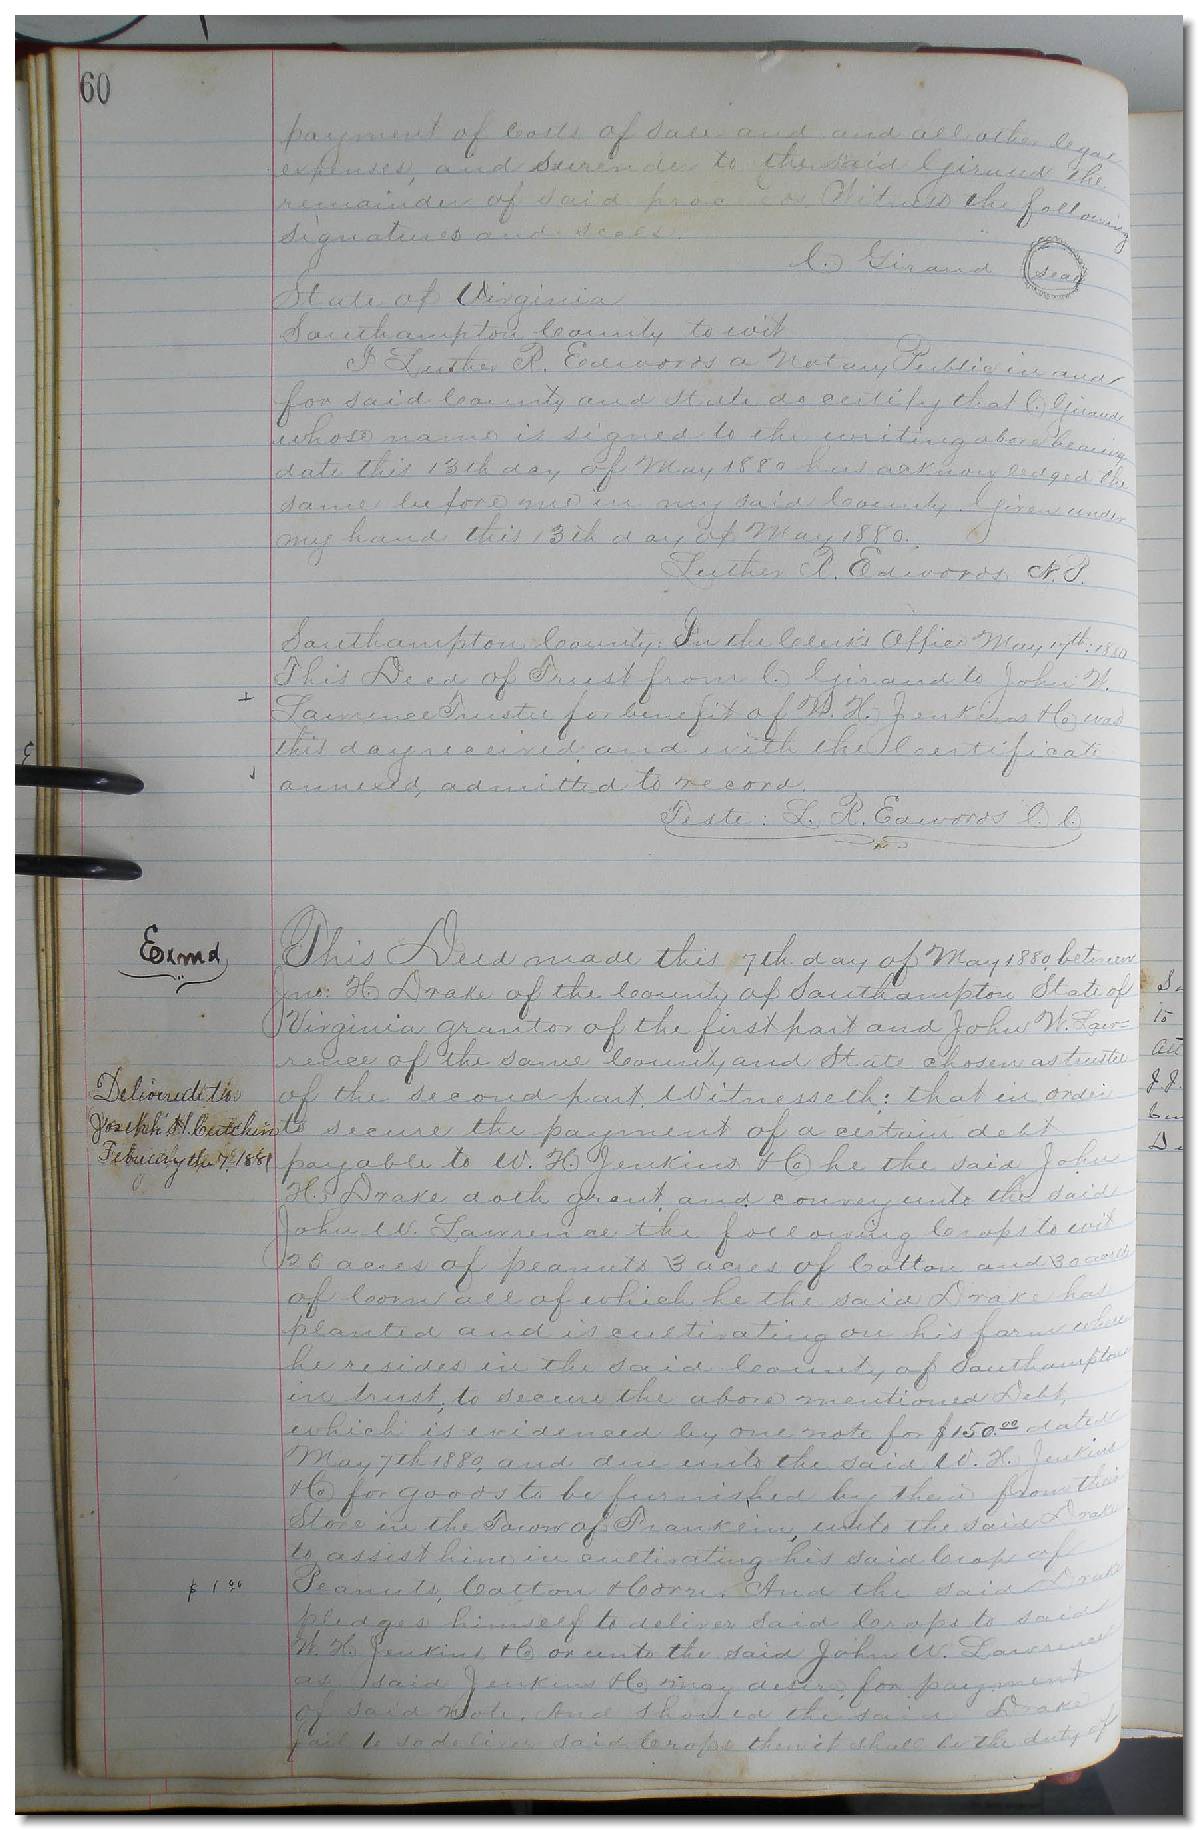 60
payment of Costs of Sale and and all other legal
expenses, and Surrender to the said C Giraud the
remainder of said Witness the following
signatures and seals.
C. Giraud seal
State of Virginia
Southampton County to wit
I Luther R. Edwards a Notary Public in and
for said County and State do certify that C. Giraud
whose name is signed to the writing above bearing
date this 13th day of May 1880 has acknowledged the
same before me in my said County. Given under
my hand this 13th day of May 1880.
Luther R. Edwards N.P.
Southampton County: In the Clerk's Office May 17th: 1880
This Deed of Trust from C. Giraud to John W.
Lawrence Trustee for benefit of W. H. Jenkins & Co was
this day received and with the Certificate
annexed, admitted to record.
Teste: L. R. Edwards C. C.
Exmd
This Deed made this 7th day of May 1880, between
Jno: H. Drake of the County of Southampton State of
Virginia grantor of the first part and John W. Law=
rence of the same County and State chosen as trustee
of the second part. Witnesseth: that in order
to secure the payment of a certain debt
payable to W. H. Jenkins & Co he the said John
H. Drake doth grant and convey unto the said
John W. Lawrence the following Crops to wit
20 acres of peanuts 3 acres of Cotton and 30 acres
of Corn all of which he the said Drake has
planted and is cultivating on his farm where
he resides in the said County of Southampton
in trust, to secure the above mentioned Debt,
which is evidenced by one note for $150.00 dated
May 7th 1880, and due unto the said W. H. Jenkins
& Co for goods to be furnished by them from their
Store in the Town of Franklin, unto the said Drake
to assist him in cultivating his said Crop of
Peanuts, Cotton & Corn. And the said Drake
pledges himself to deliver said Crops to said
W. H. Jenkins & Co or unto the said John W. Lawrence
as said Jenkins & Co may desire for payment
of said Note. And Should the said Drake
fail to so deliver said Crops then it shall be the duty of
Delivered to
Joseph H. Cutchins
February the 7th 1881
$1.00